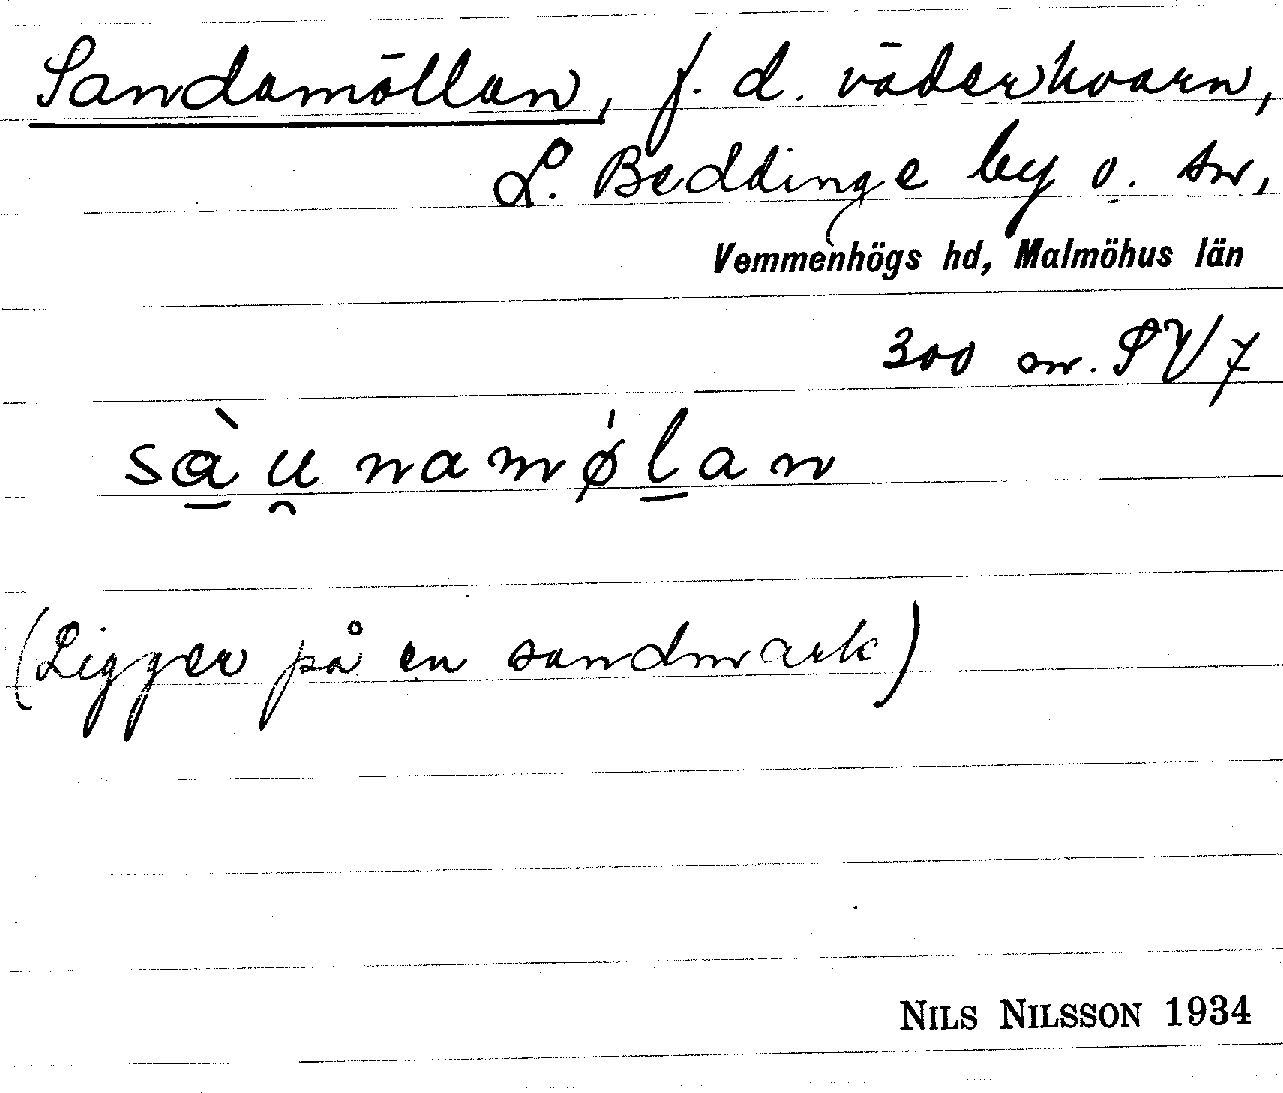 Sandamöllan, f. d. väderkvarn,
L. Beddinge by o. sn,
Vemmenhögs hd, Malmöhus län
300 m. SV/7
sà̲u̯namǿl̲an
(Ligger på en sandmark)
NILS NILSSON 1934